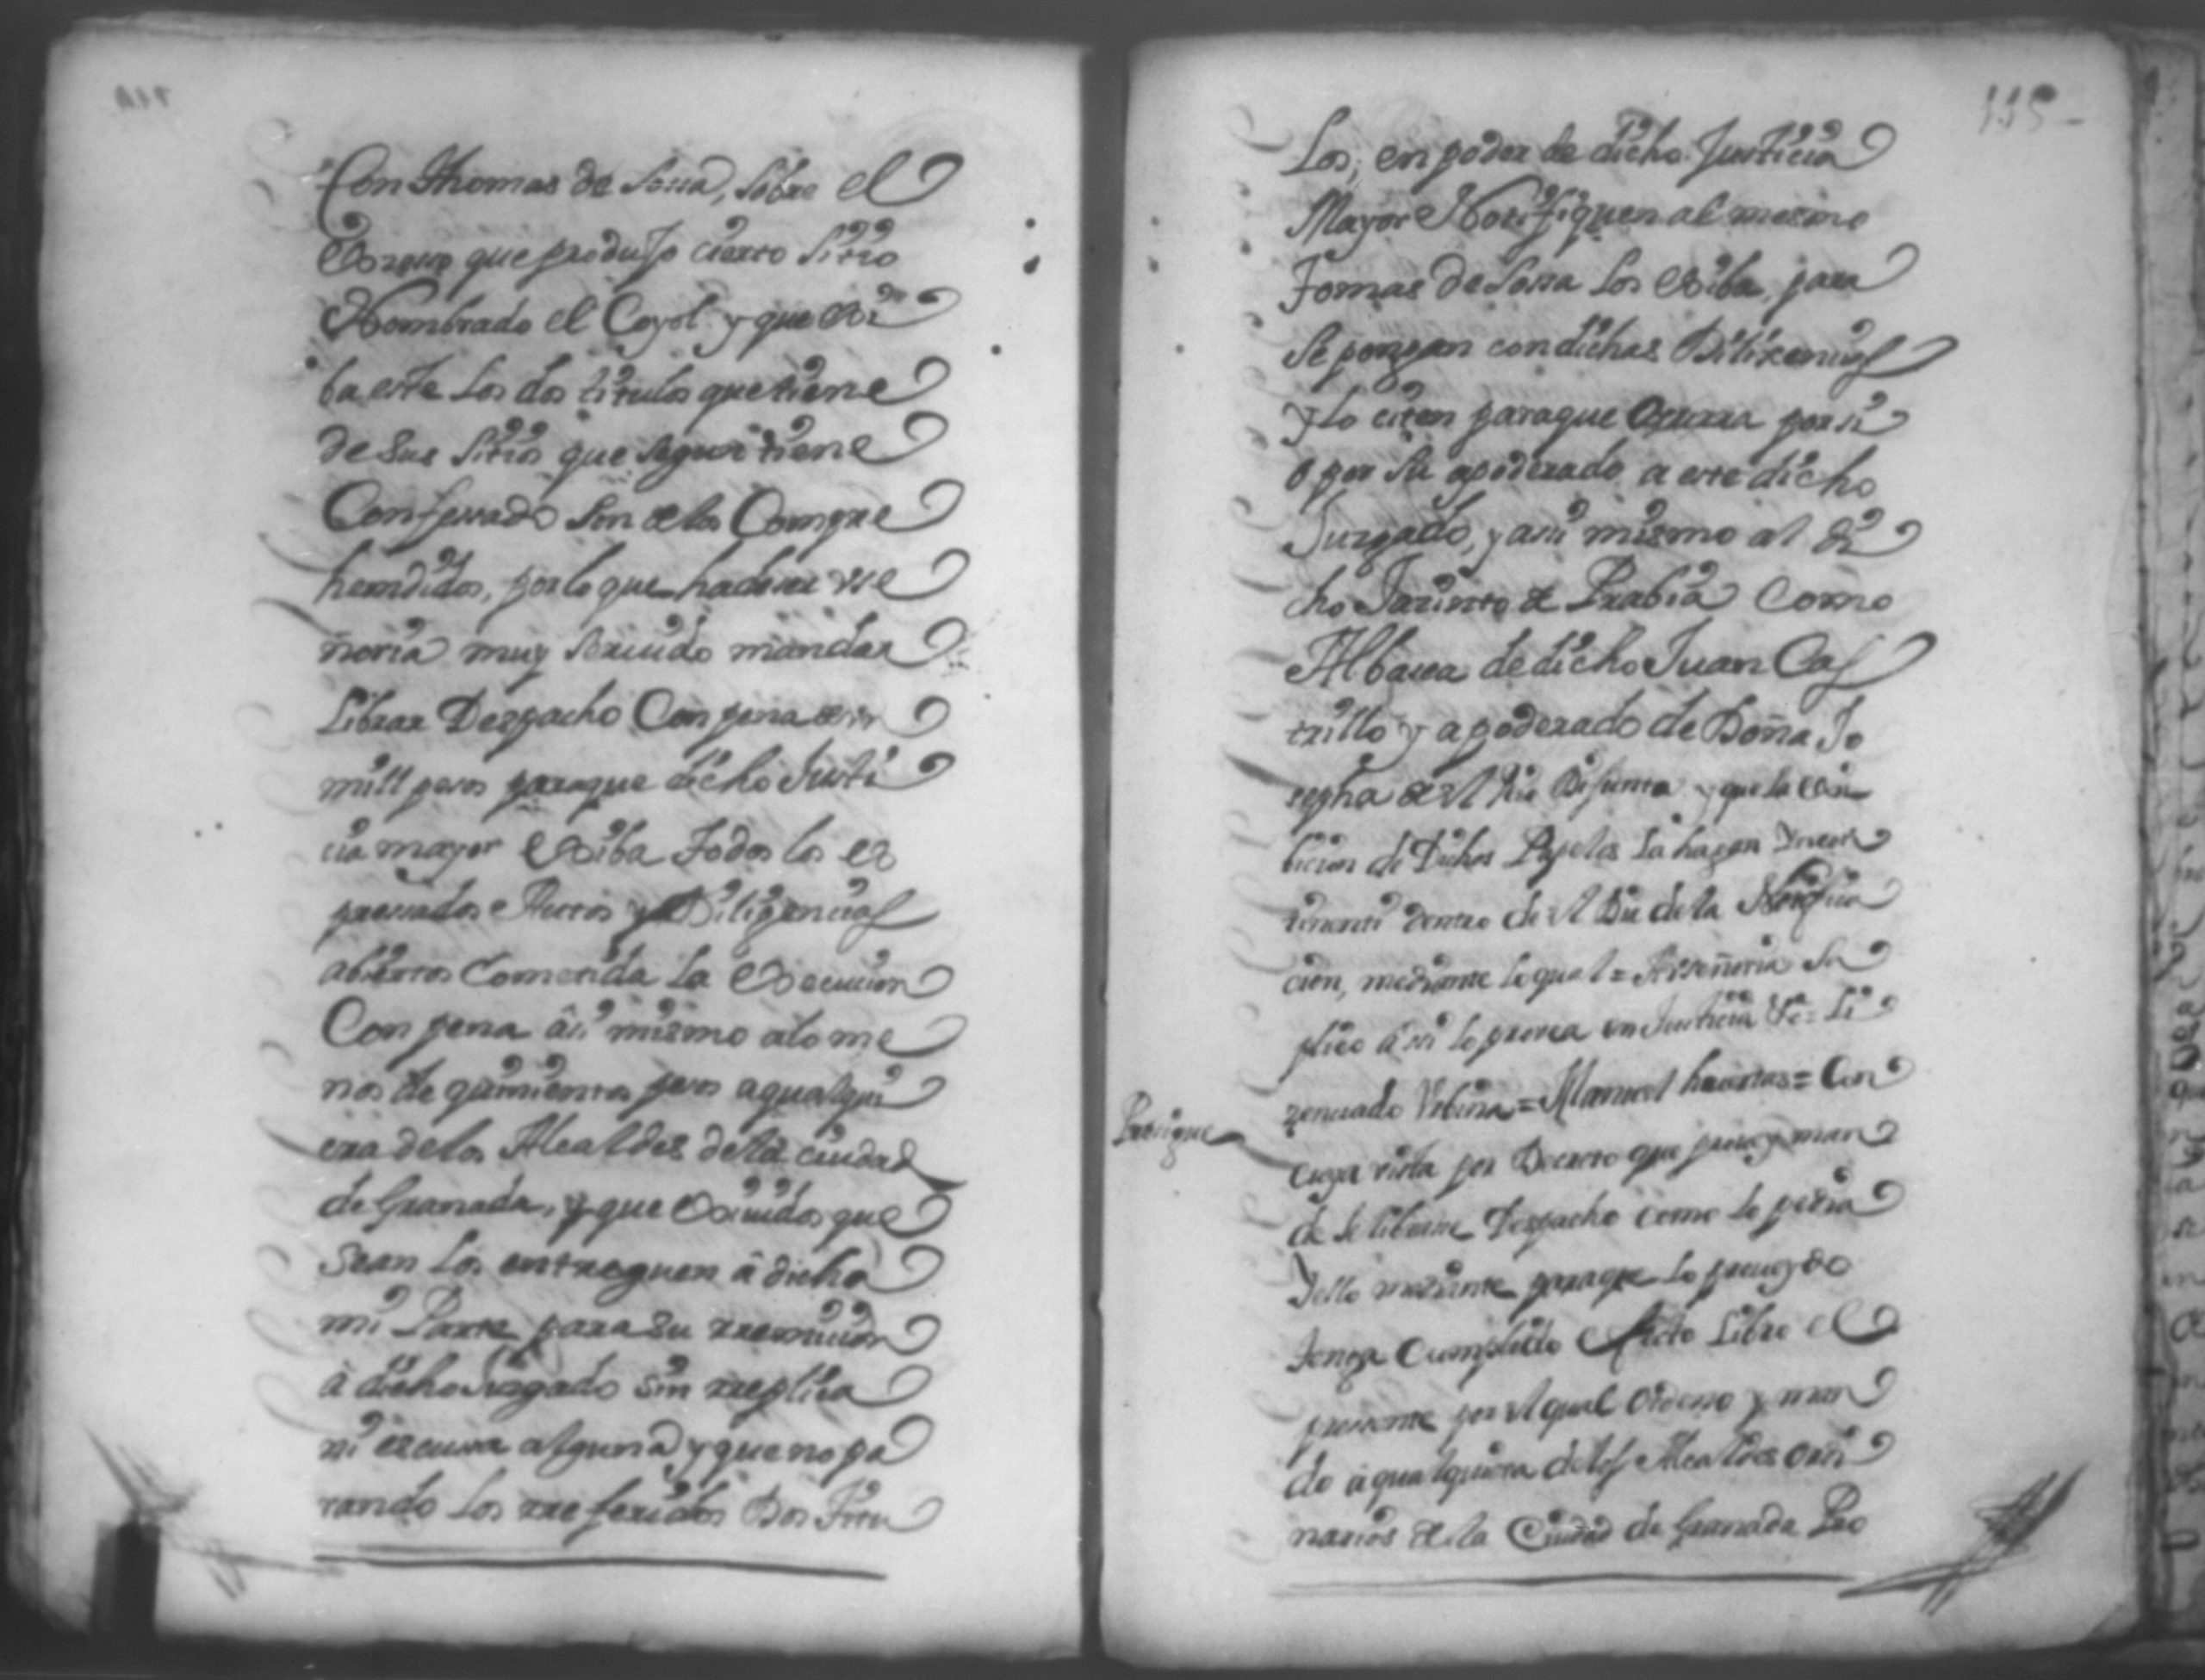 Con Thomas de Soria, sobre el
que produjo cierto sitio
Nombrado el Coyol y que Exi
ba este los dos titulos que tiene
de sus sitios que segun tiene
Confesado son de los Compre
hendidos, por lo que ha de ser vse
ñoria muy seruido mandar
Librar Despacho Con pena de
mill pesos para que dicho Justi
cia mayor Exiba todos los ex
presados Autos y Diligencias
abiertos Cometida la Execucion
Con pena âsi mismo alo me
nos de quinientos pesos a qualqui
era de los Alcaldes de la ciudad
de Granada, y que Exiuidos que
sean los entreguen â dicho
mi Parte para su rremicion
â dicho Juzgado sin rreplica
ni escusa alguna y que no pa
rando los rreferidos Dos Titu
115
Los, en poder de dicho Justicia
Mayor Notifiquen al mesmo
Tomas de Soria los Exiba, para
se pongan con dichas Dilixencias
y lo citen para que Ocurra por si
o por su apoderado a este dicho
Juzgado, y asi mismo al di
cho Jacinto de Prabia Como
Albasea de dicho Juan Cas
trillo y apoderado de Doña Jo
sepha Difunta y que la Exi
bicion de Dichos Papeles la hagan Yncon
tinenti dentro de el Dia de la Notifica
cion, mediante lo qual = A vseñoria Su
plico â si lo prouea en Justicia &a = Li
zenciado Vrbina = Manuel huertas = Con
Prosigue
cuya vista por Decreto que prouey man
de se librase Despacho como lo pedia
Y ello mediante para que lo proueydo
tenga Cumplido efecto Libro el
presente por el qual Ordeno y man
do a qualquiera de los Alcaldes ordi
narios de la Ciudad de Granada Pro